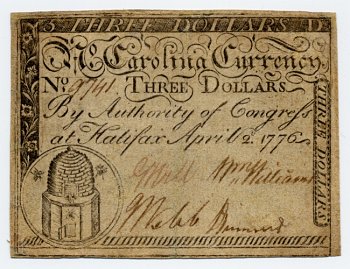 THREE DOLLARS D
N. Carolina Currency.
No. THREE DOLLARS
By Authority of Congress
at Halifax April 2. 1776
Wm Williams
J Webb
THREE DOLLARS